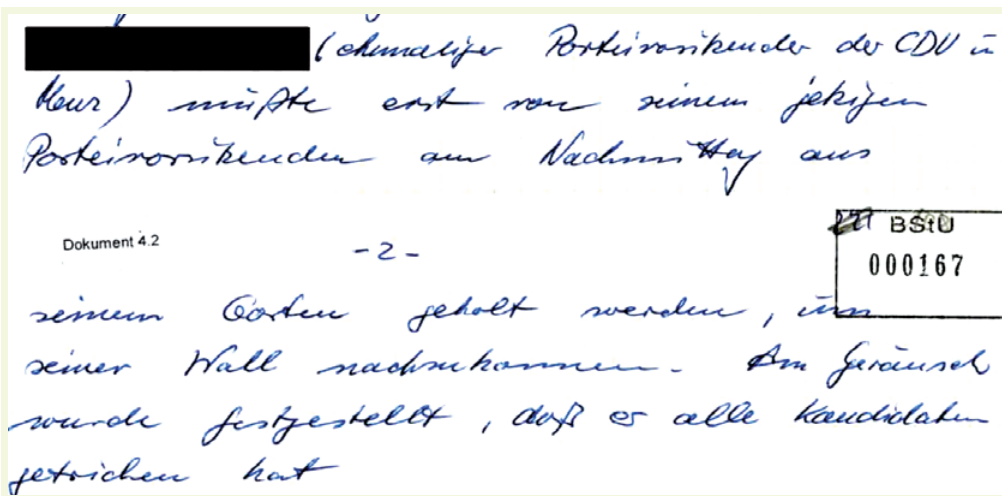 (ehmaliger Parteivorsitzender der CDU in
mußte erst von seinem jetzigen
Parteivorsitzenden am Nachmittag aus
Dokument 4.2
- 2 -
BStU
000167
seinem Garten geholt werden, um
seiner Wall nachzukommen. Am Geräusch
wurde festgestellt, daß er alle Kandidaten
getrichen hat